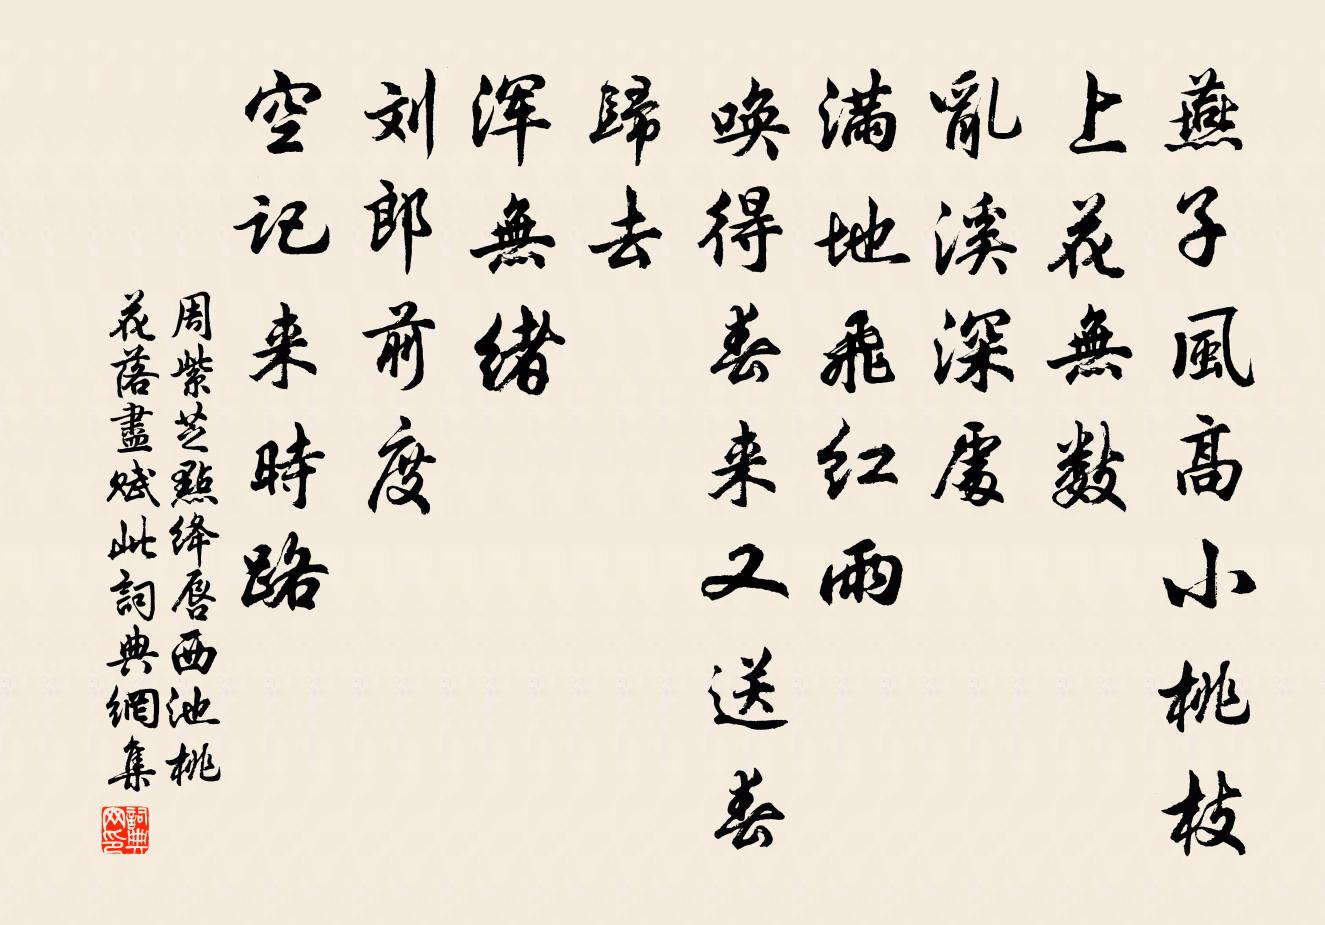 燕子風高小桃枝
上花無數
亂溪深處
满地飛红雨
唤得春来又送春
歸去
浑無緒
刘郎前度
空记来時路
周紫芝點绛唇西池桃
花落盡赋此詞典網集
詞典网印